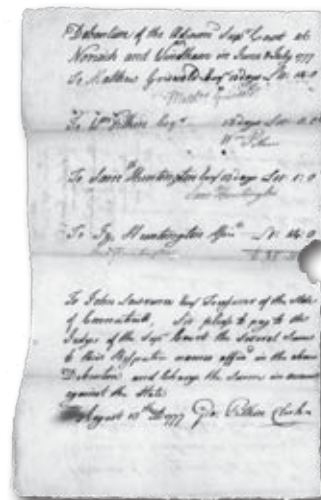 Debenture of the Adjourn'd Sup.r Court at
Norwich and Windham in June & July 1777
To Matthew Griswold Esq.r 12 days
Matth.w Griswold
To W.m Pitkin Esq.r 12 days
W.m Pitkin
To Sam.l Huntington Esq.r 12 days
Sam.l Huntington
To Huntington
To John Lawrence Esq.r Treasurer of the State
of Connecticut, Sir please to pay to the
Judges of the Sup.r Court the several Sums
to their Respective names affix'd in the above
Debenture and charge the same in account
against the State
August 15th 1777 Geo. Pitkin Clerk